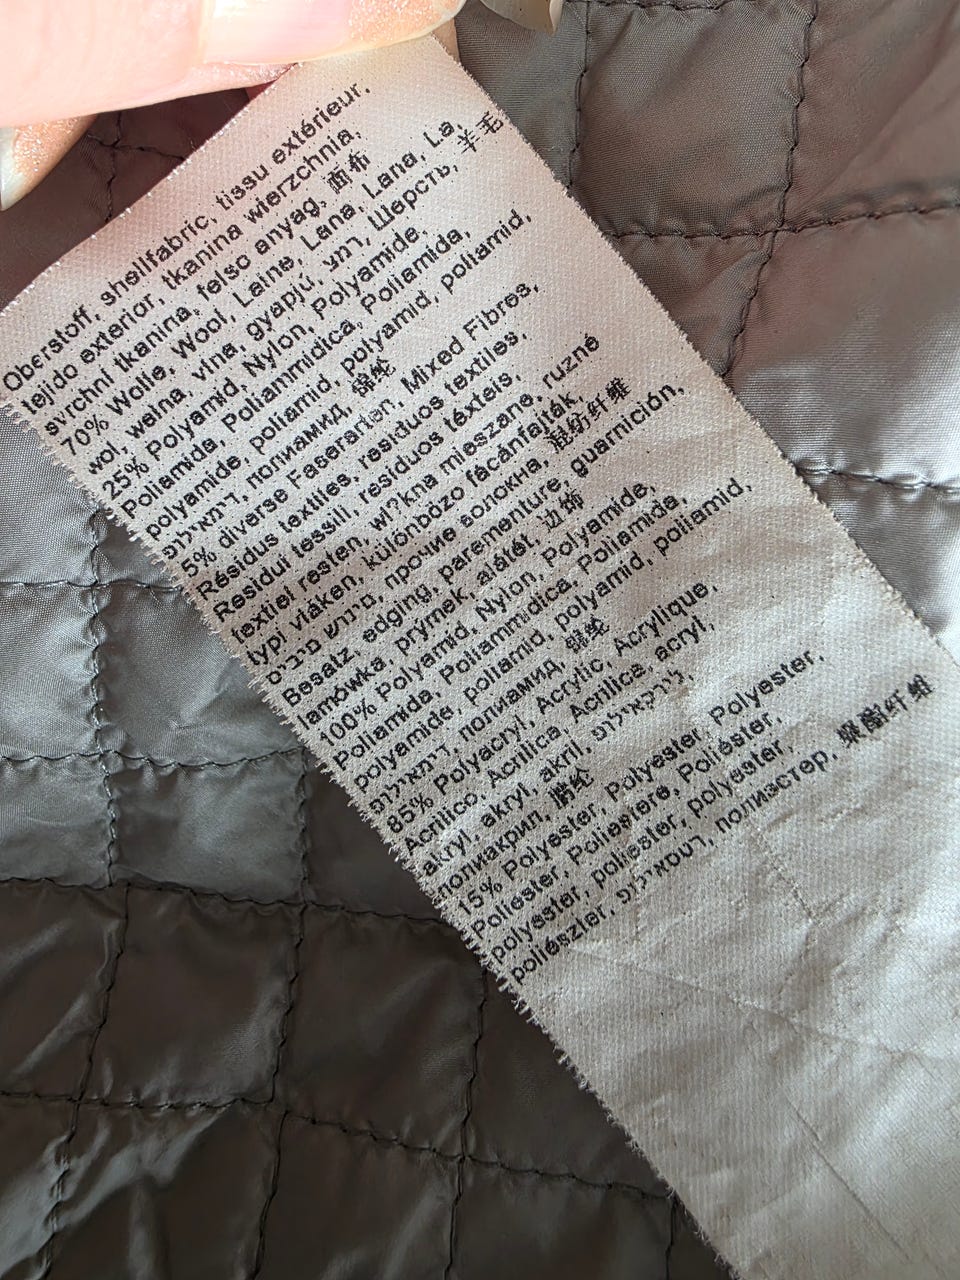 Oberstoff, shellfabric, tissu extérieur,
tejido exterior, tkanina wierzchnia,
svrchní tkanina, felso anyag, 面布
70% Wolle, Wool, Laine, Lana, Lana, La,
wol, wełna, vlna, gyapjú, צמר, Шерсть, 羊毛
25% Polyamid, Nylon, Polyamide,
Poliamida, Poliammidica, Poliamida,
polyamide, poliamid, polyamid, poliamid,
פוליאמיד, полиамид, 锦纶
5% diverse Faserarten, Mixed Fibres,
Résidus textiles, residuos textiles,
Residui tessili, resíduos têxteis,
textiel resten, wł?kna mieszane, ruzné
typi vláken, különbözo fácánfajták,
סיבים שונים, прочие волокна, 混纺纤维
Besatz, edging, parementure, guarnición,
lamówka, prýmek, alátét, 边饰
100% Polyamid, Nylon, Polyamide,
Poliamida, Poliammidica, Poliamida,
polyamide, poliamid, polyamid, poliamid,
פוליאמיד, полиамид, 锦纶
85% Polyacryl, Acrylic, Acrylique,
Acrílico, Acrilica, Acrílica, acryl,
akryl, akryl, akril, פוליאקריל,
полиакрил, 腈纶
15% Polyester, Polyester, Polyester,
Poliéster, Poliestere, Poliéster,
polyester, poliester, polyester,
poliészter, פוליאסטר, полиэстер, 聚酯纤维